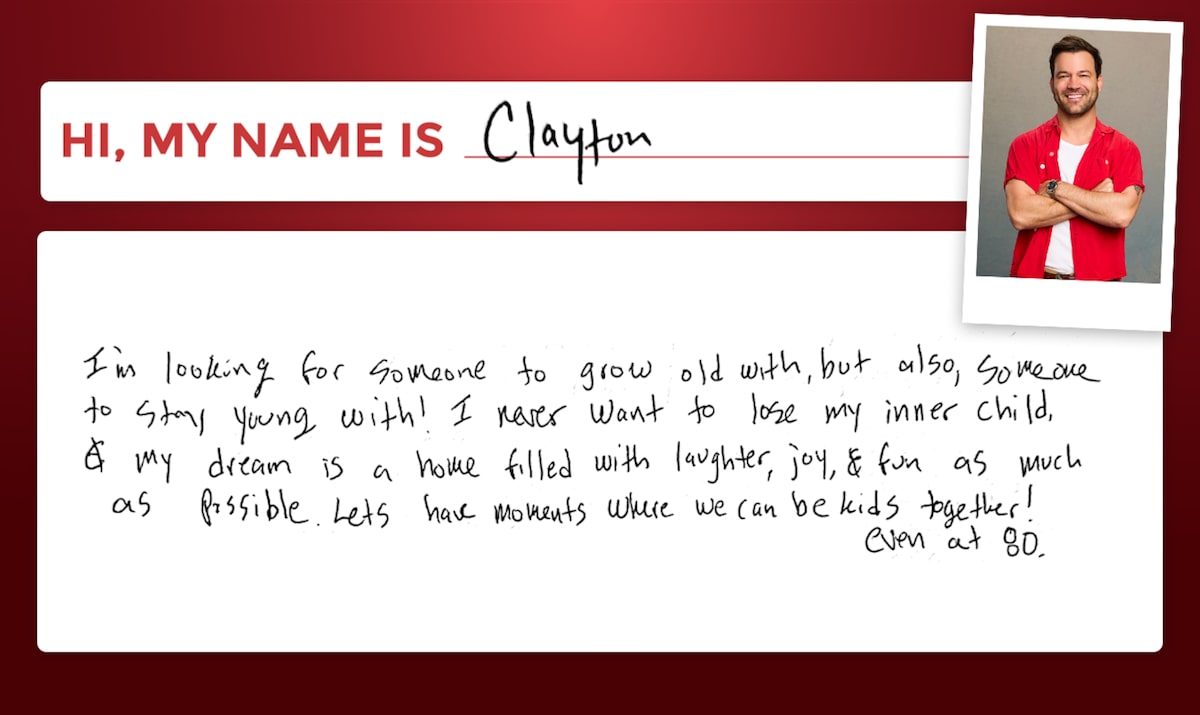 HI, MY NAME IS Clayton
I'm looking for someone to grow old with, but also, someone
to stay young with! I never want to lose my inner child,
& my dream is a home filled with laughter, joy, & fun as much
as possible. Lets have moments where we can be kids together!
even at 80.